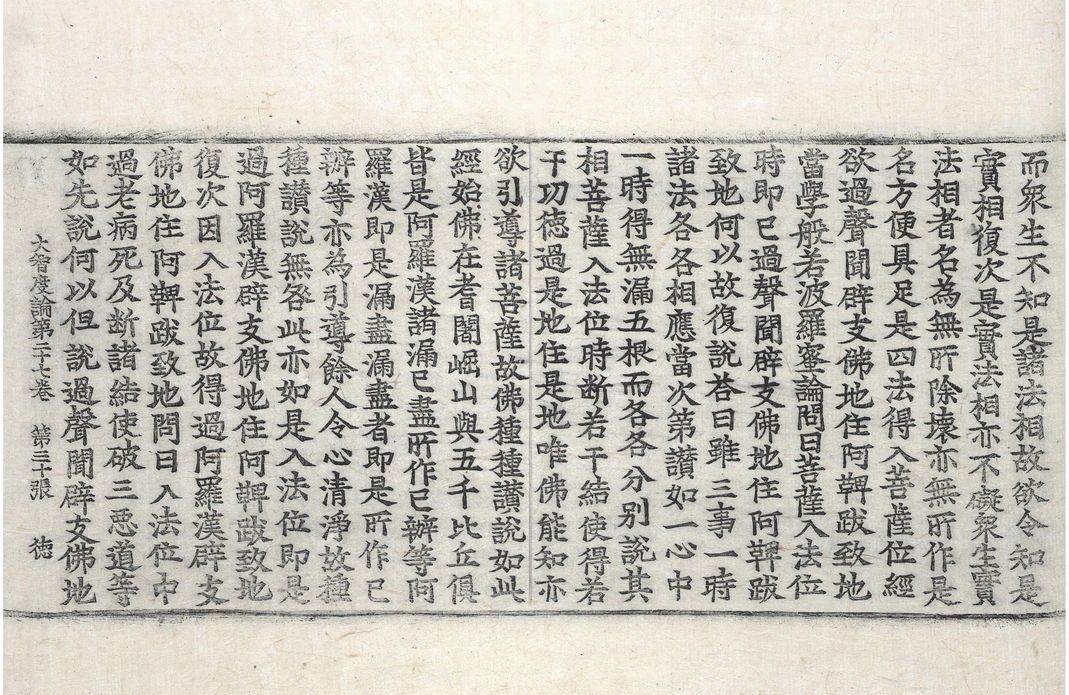 而衆生不知是諸法相故欲令知是
實相復次是實法相亦不礙衆生實
法相者名為無所除壞亦無所作是
名方便具足是四法得入菩薩位經
欲過聲聞辟支佛地住阿鞞跋致地
當學般若波羅蜜論問曰菩薩入法位
時即已過聲聞辟支佛地住阿鞞跋
致地何以故復說荅曰雖三事一時
諸法各各相應當次第讃如一心中
一時得無漏五根而各各分別說其
相菩薩入法位時断若干結使得若
干功德過是地住是地唯佛能知亦
欲引導諸菩薩故佛種種讃說如此
經始佛在耆闍崛山與五千比丘俱
皆是阿羅漢諸漏已盡所作已辦等阿
羅漢即是漏盡漏盡者即是所作已
辦等亦為引導餘人令心清淨故種
種讃說無咎此亦如是入法位即是
過阿羅漢辟支佛地住阿鞞跋致地
復次因入法位故得過阿羅漢辟支
佛地住阿鞞跋致地問曰入法位中
過老病死及断諸結使破三惡道等
如先說何以但說過聲聞辟支佛地
大智度論第二十七卷 第三十張 德